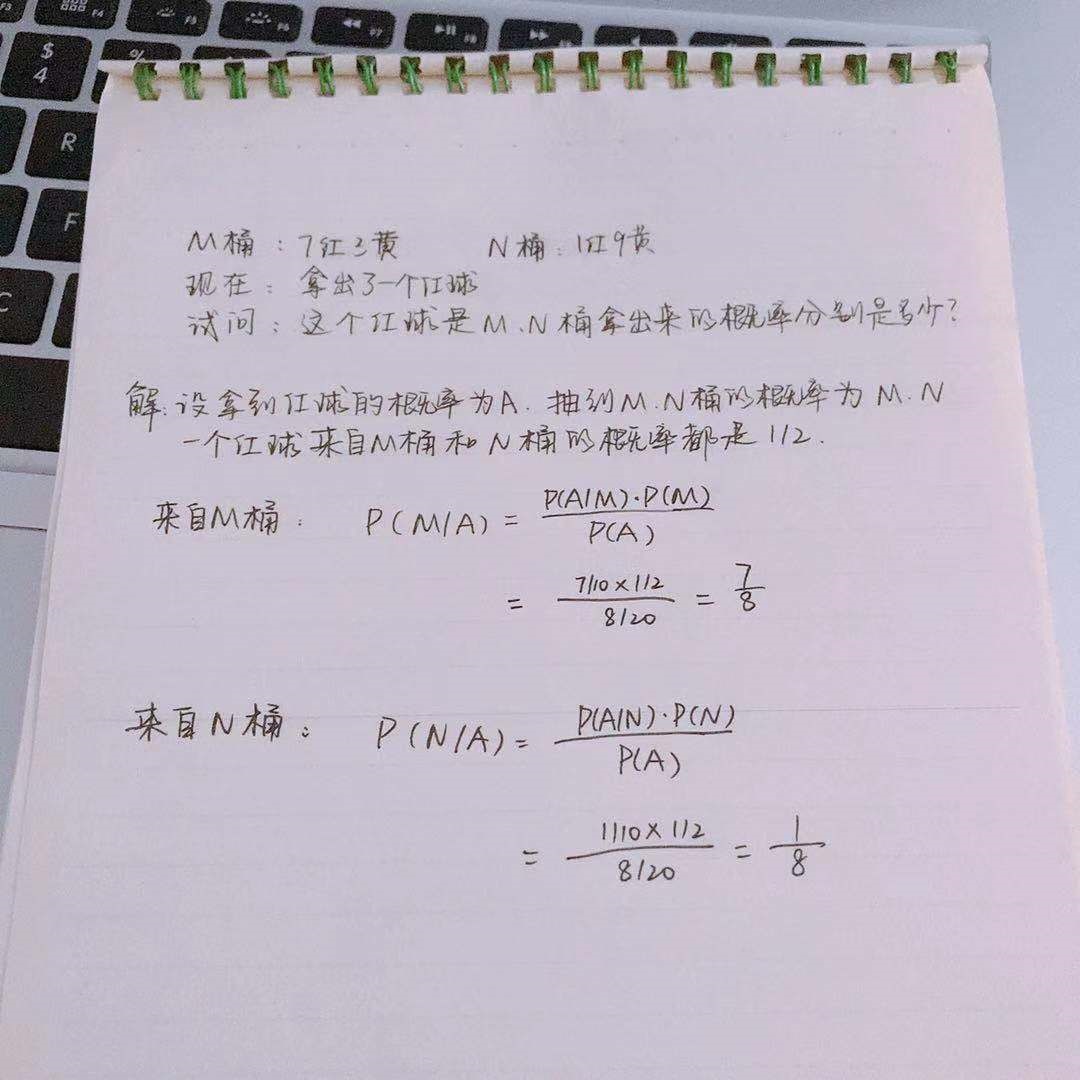 $
4
%
R
F
C
F4
F5
F6
F7
F8
M桶：7红3黄 N桶：1红9黄
现在：拿出了一个红球
试问：这个红球是M、N桶拿出来的概率分别是多少？
解：设拿到红球的概率为A．抽到M．N桶的概率为M．N
一个红球来自M桶和N桶的概率都是1/2．
来自M桶： P(M/A) = P(A/M)·P(M) / P(A)
= 7/10×1/2 / 8/20 = 7/8
来自N桶： P(N/A) = P(A/N)·P(N) / P(A)
= 1/10×1/2 / 8/20 = 1/8